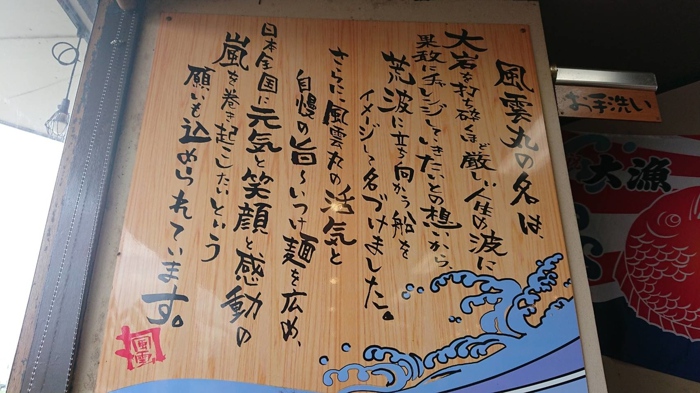 風雲丸の名は、
大岩を打ち砕くほど厳しい人生の波に
果敢にチャレンジしていきたいとの想いから
荒波に立ち向かう船を
イメージして名づけました。
さらに、風雲丸の活気と
自慢の旨〜いつけ麺を広め、
日本全国に元気と笑顔と感動の
嵐を巻き起こしたいという
願いも込められています。
風雲丸
お手洗い
大漁